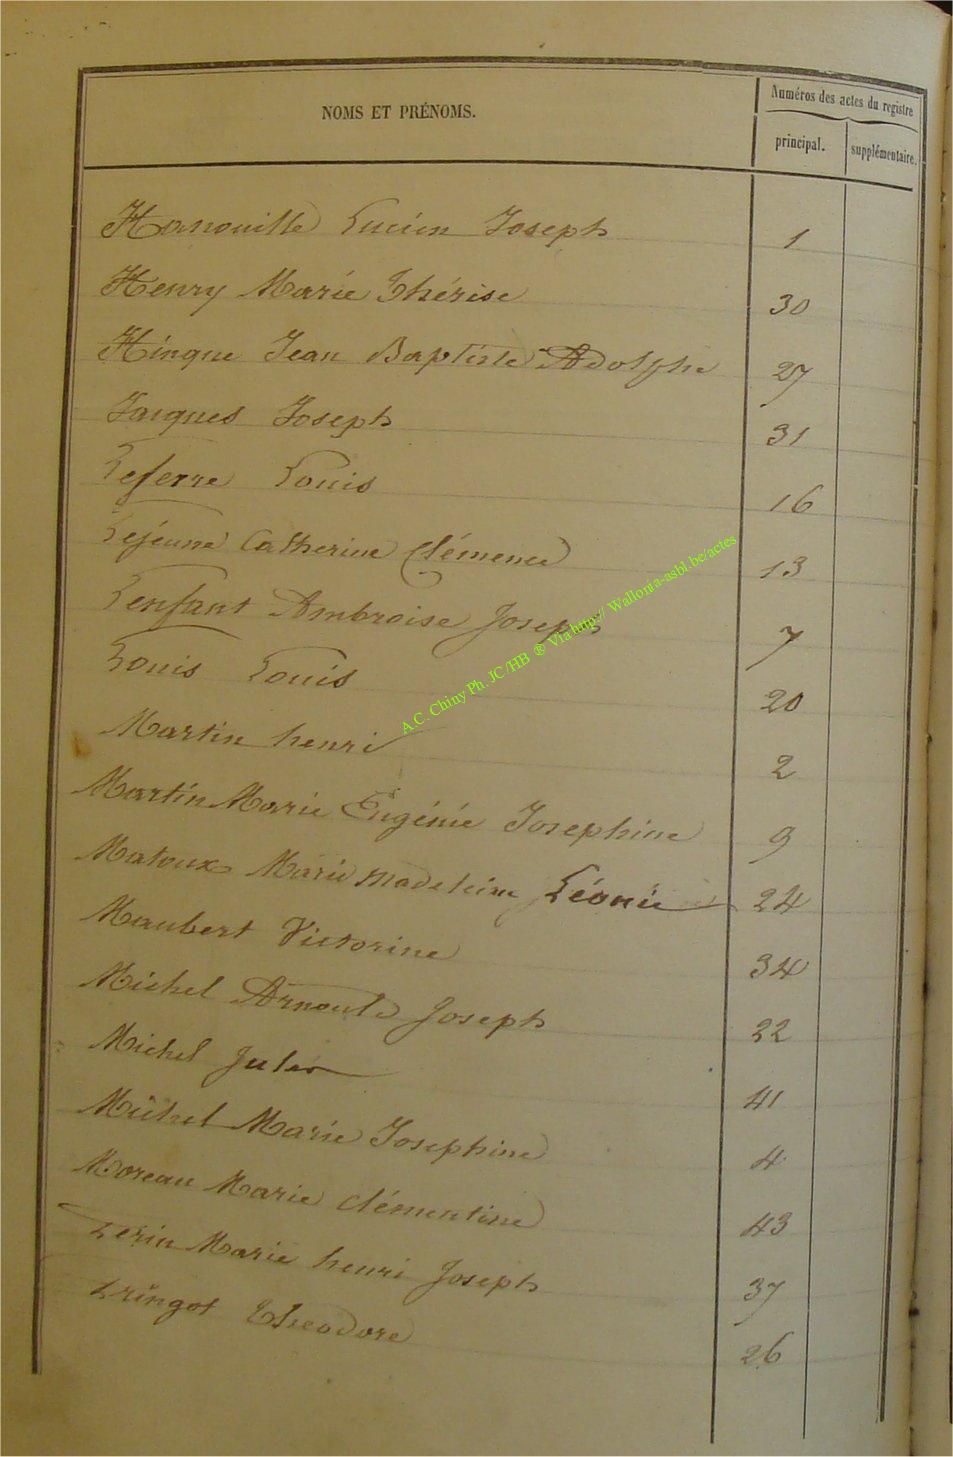 NOMS ET PRÉNOMS.
Numéros des actes du registre
principal. supplémentaire.
Hanouille Lucien Joseph 1
Henry Marie Thérèse 30
Hinque Jean Baptiste Adolphe 27
Jacques Joseph 31
Leferre Louis 16
Lejeune Catherine Clémence 13
Lenfant Ambroise Joseph 7
Louis Louis 20
Martin henri 2
Martin Marie Eugénie Josephine 9
Matoux Marie Madeleine Léonie 24
Maubert Victorine 34
Michel Arnould Joseph 22
Michel Jules 41
Michel Marie Josephine 4
Moreau Marie Clémentine 43
Marie henri Joseph 37
Theodore 26
A.C. Chiny Ph. JC/HB ® Via http:// Wallonia-asbl.be/actes